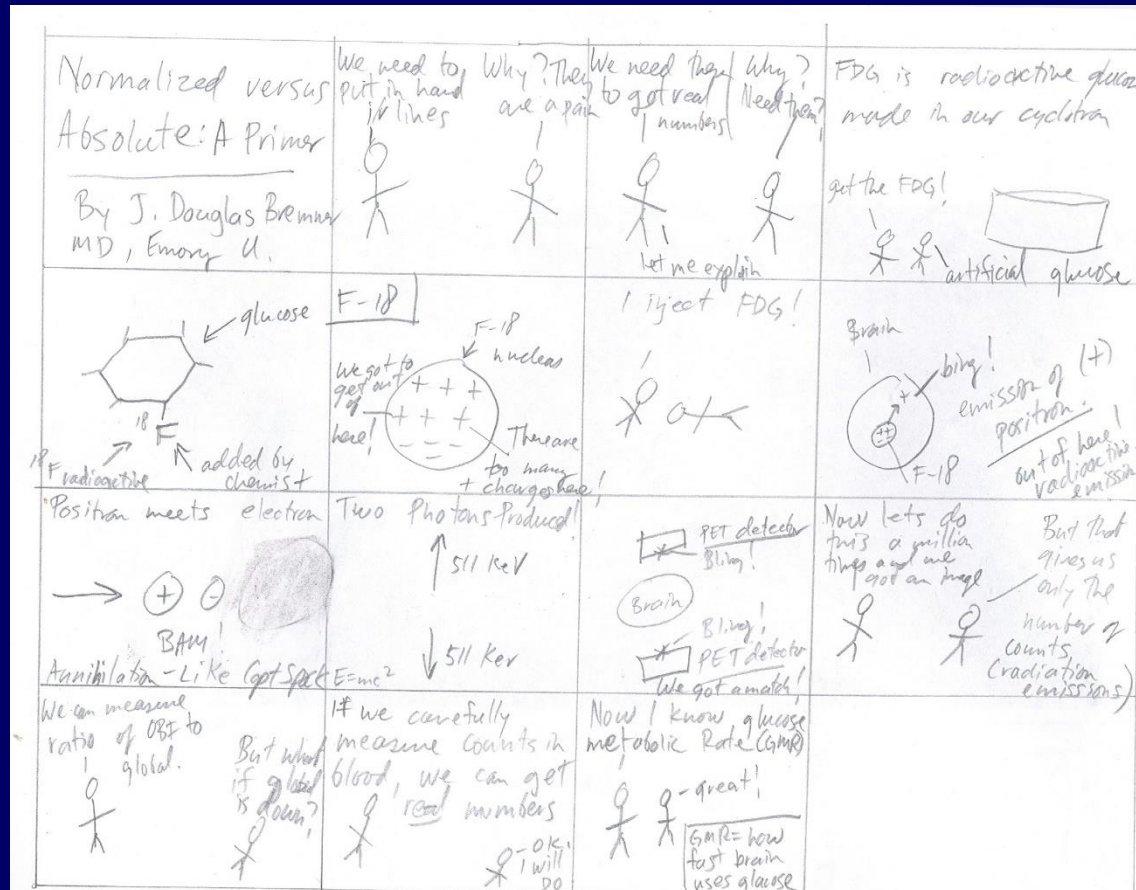 Normalized versus
Absolute: A Primer
By J. Douglas Bremner
MD, Emory U.
We need to
put in hand
lines
Why? They
are a pain
We need them
to got real
numbers
Why?
Need them?
Let me explain
FDG is radioactive glucose
made in our cyclotron
get the FDG!
artificial glucose
glucose
18
F
18F radioactive
added by
chemist
F-18
F-18
nucleas
We got to
get out
of
here!
+ + +
+ + +
- - -
There are
too many
+ charges here!
I iject FDG!
Brain
bing!
+
++
F-18
emission of (+)
positron.
out of here!
radioactive
emission
Positron meets electron
+ -
BAM!
Annihilation - Like Capt Spock E=mc²
Two Photons Produced!
511 KeV
511 Kev
PET detector
Bling!
Brain
Bling!
PET detector
We got a match!
Now lets do
this a million
times and we
got an image
But that
gives us
only the
number of
counts
(radiation
emissions)
We can measure
ratio of OBF to
global.
But what
if global
is down?
If we carefully
measure counts in
blood, we can get
real numbers
OK.
I will
DO
Now I know glucose
metabolic Rate (GMR)
- great!
GMR = how
fast brain
uses glucose